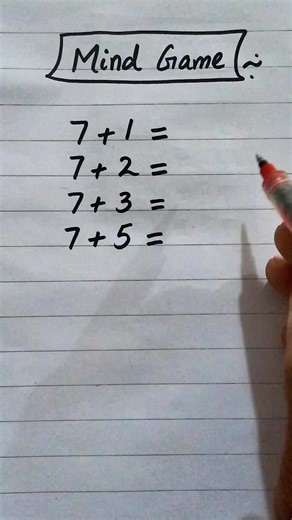 Mind Game
7 + 1 =
7 + 2 =
7 + 3 =
7 + 5 =